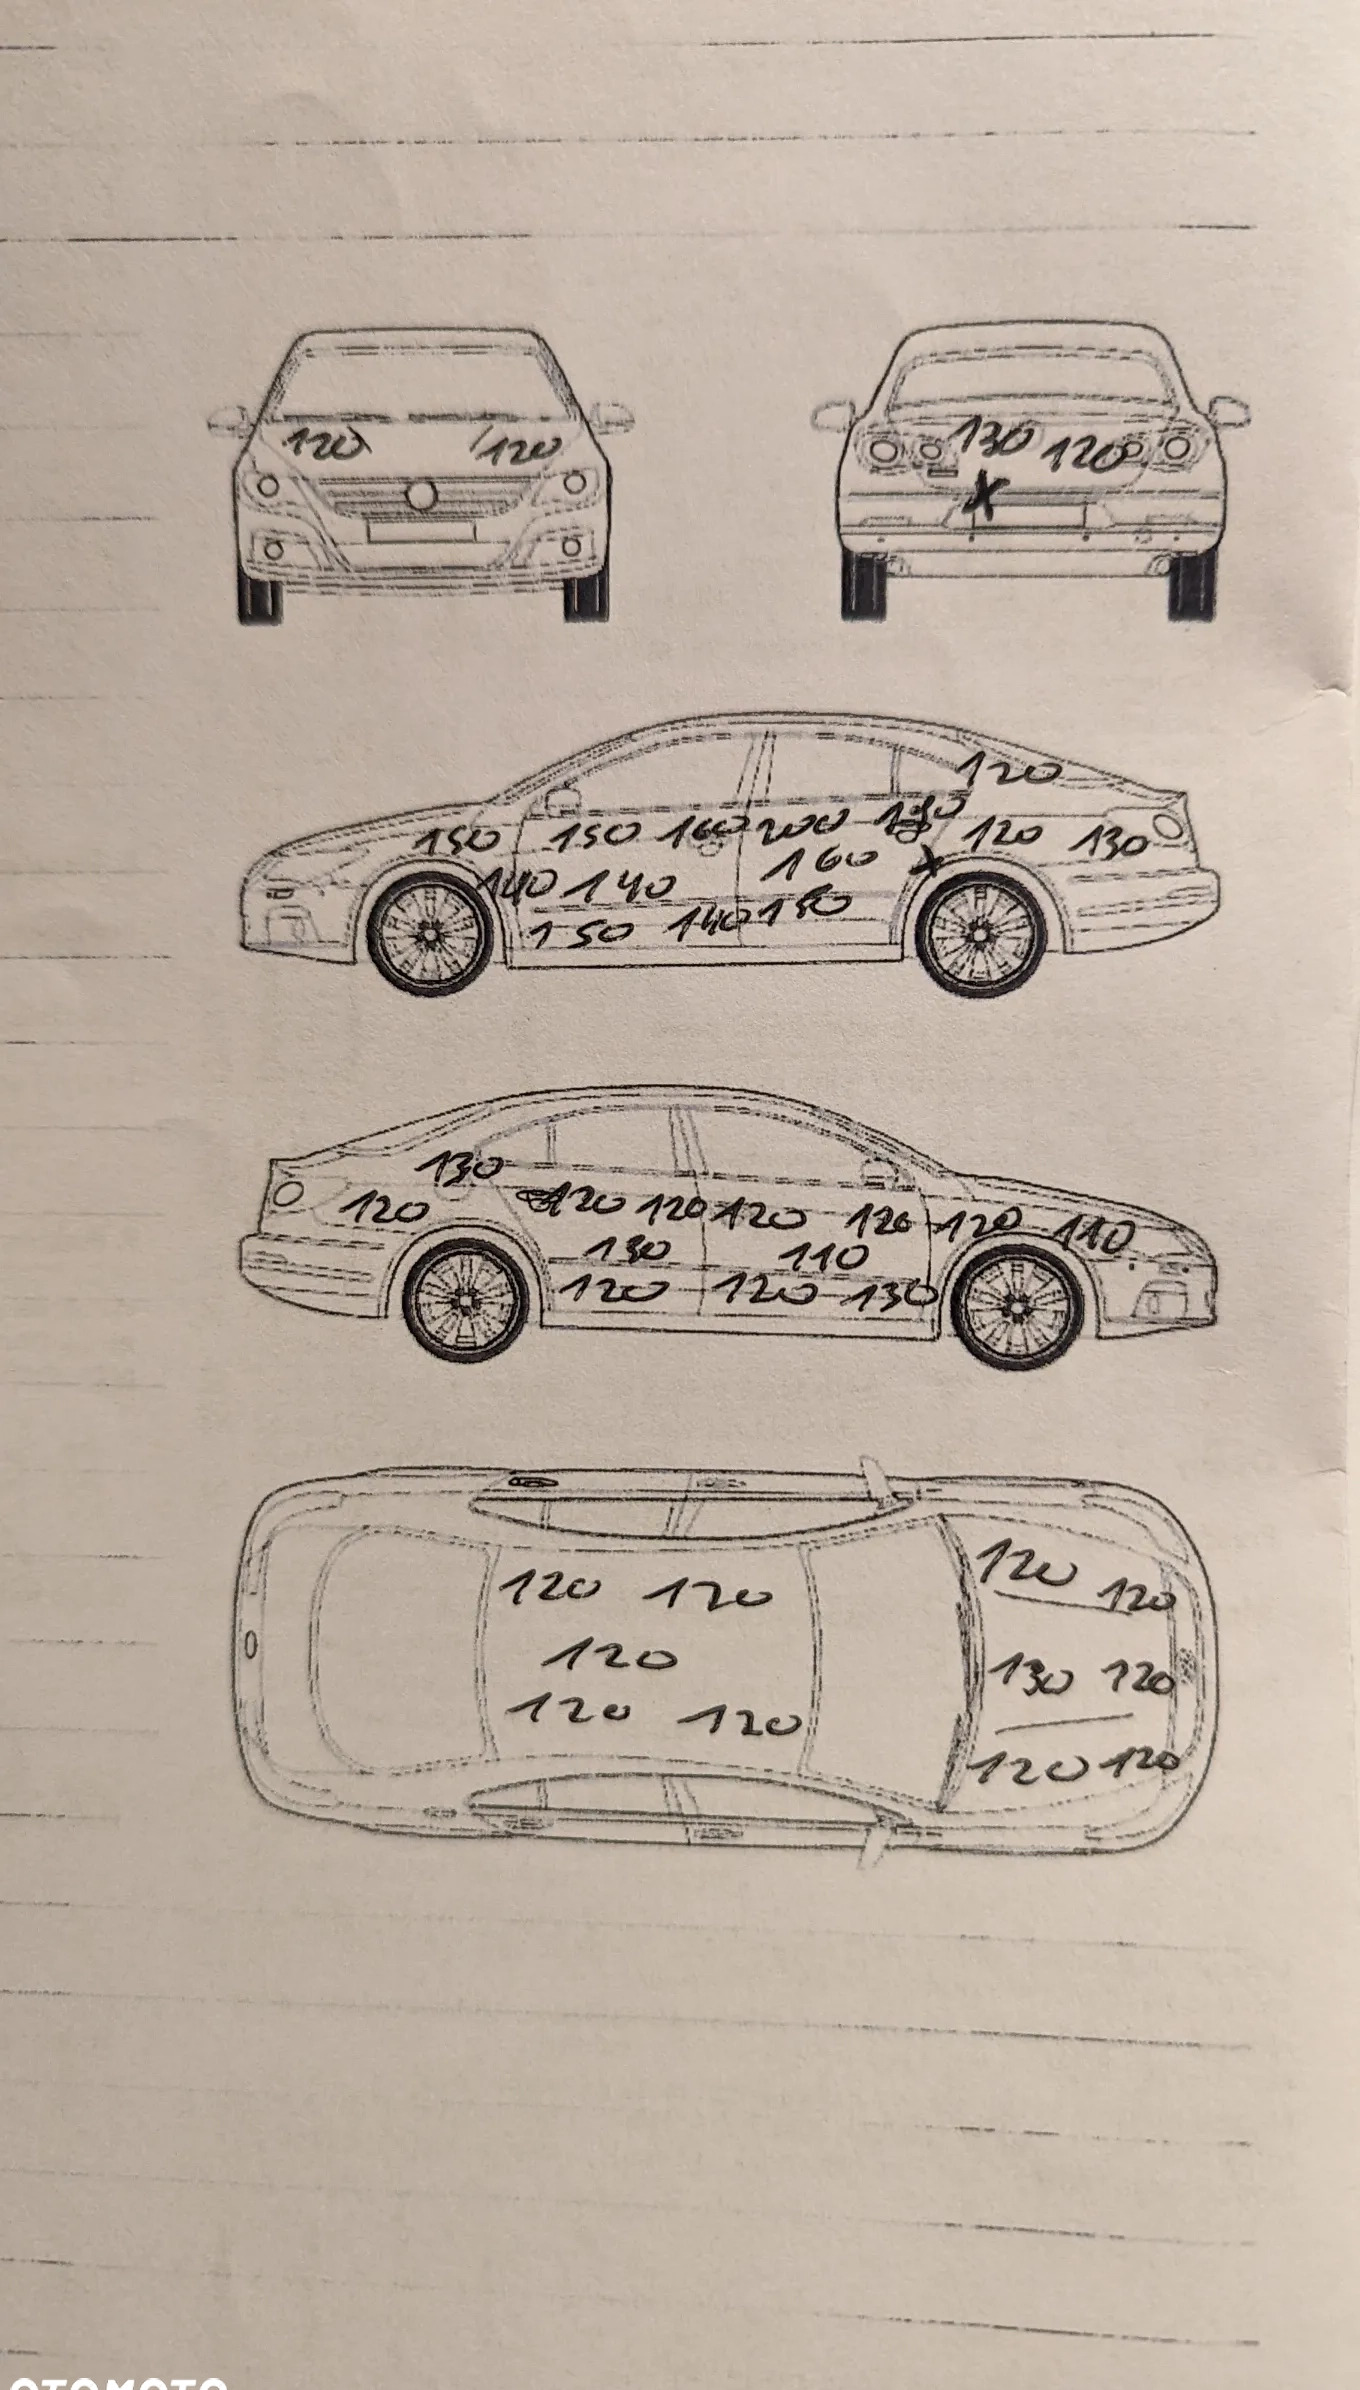 120 120
130 120
X
120
150 150 160 200 130
120 130
160
140 140
150 140 150
X
130
120 120 120 120 120 120 110
130 110
120 120 130
120 120
120
120 120
120 120
130 120
120 120